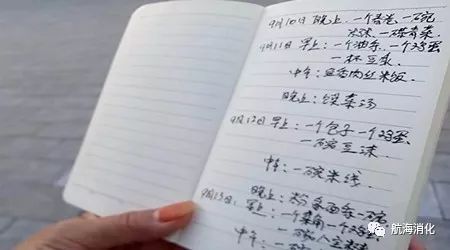 9月10日 晚上:一个香蕉 一碗
一碟青菜
9月11日 早上:一个油条、一个鸡蛋
一杯豆浆
中午:鱼香肉丝米饭
晚上:饭菜汤
9月12日 早上:一个包子 一个鸡蛋、
一碗豆沫
中午:一碗米线
晚上: 一碗
9月13日: 早上:一个菜角一个鸡蛋
一碗豆沫
中午:一碗
航海消化